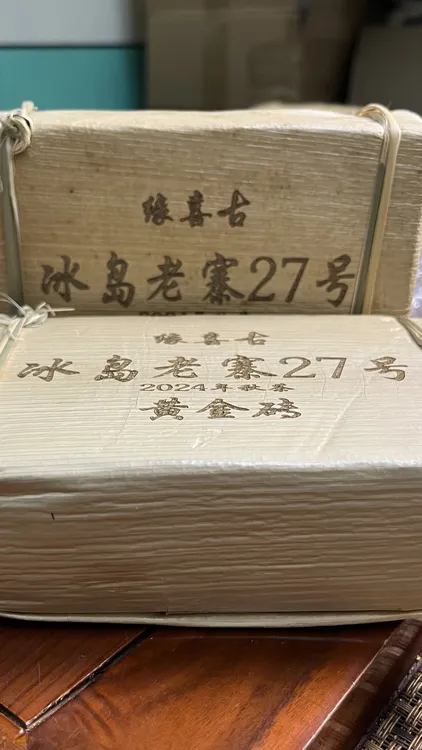 缘喜古
冰岛老寨27号
缘喜古
冰岛老寨27号
2024年秋茶
黄金砖